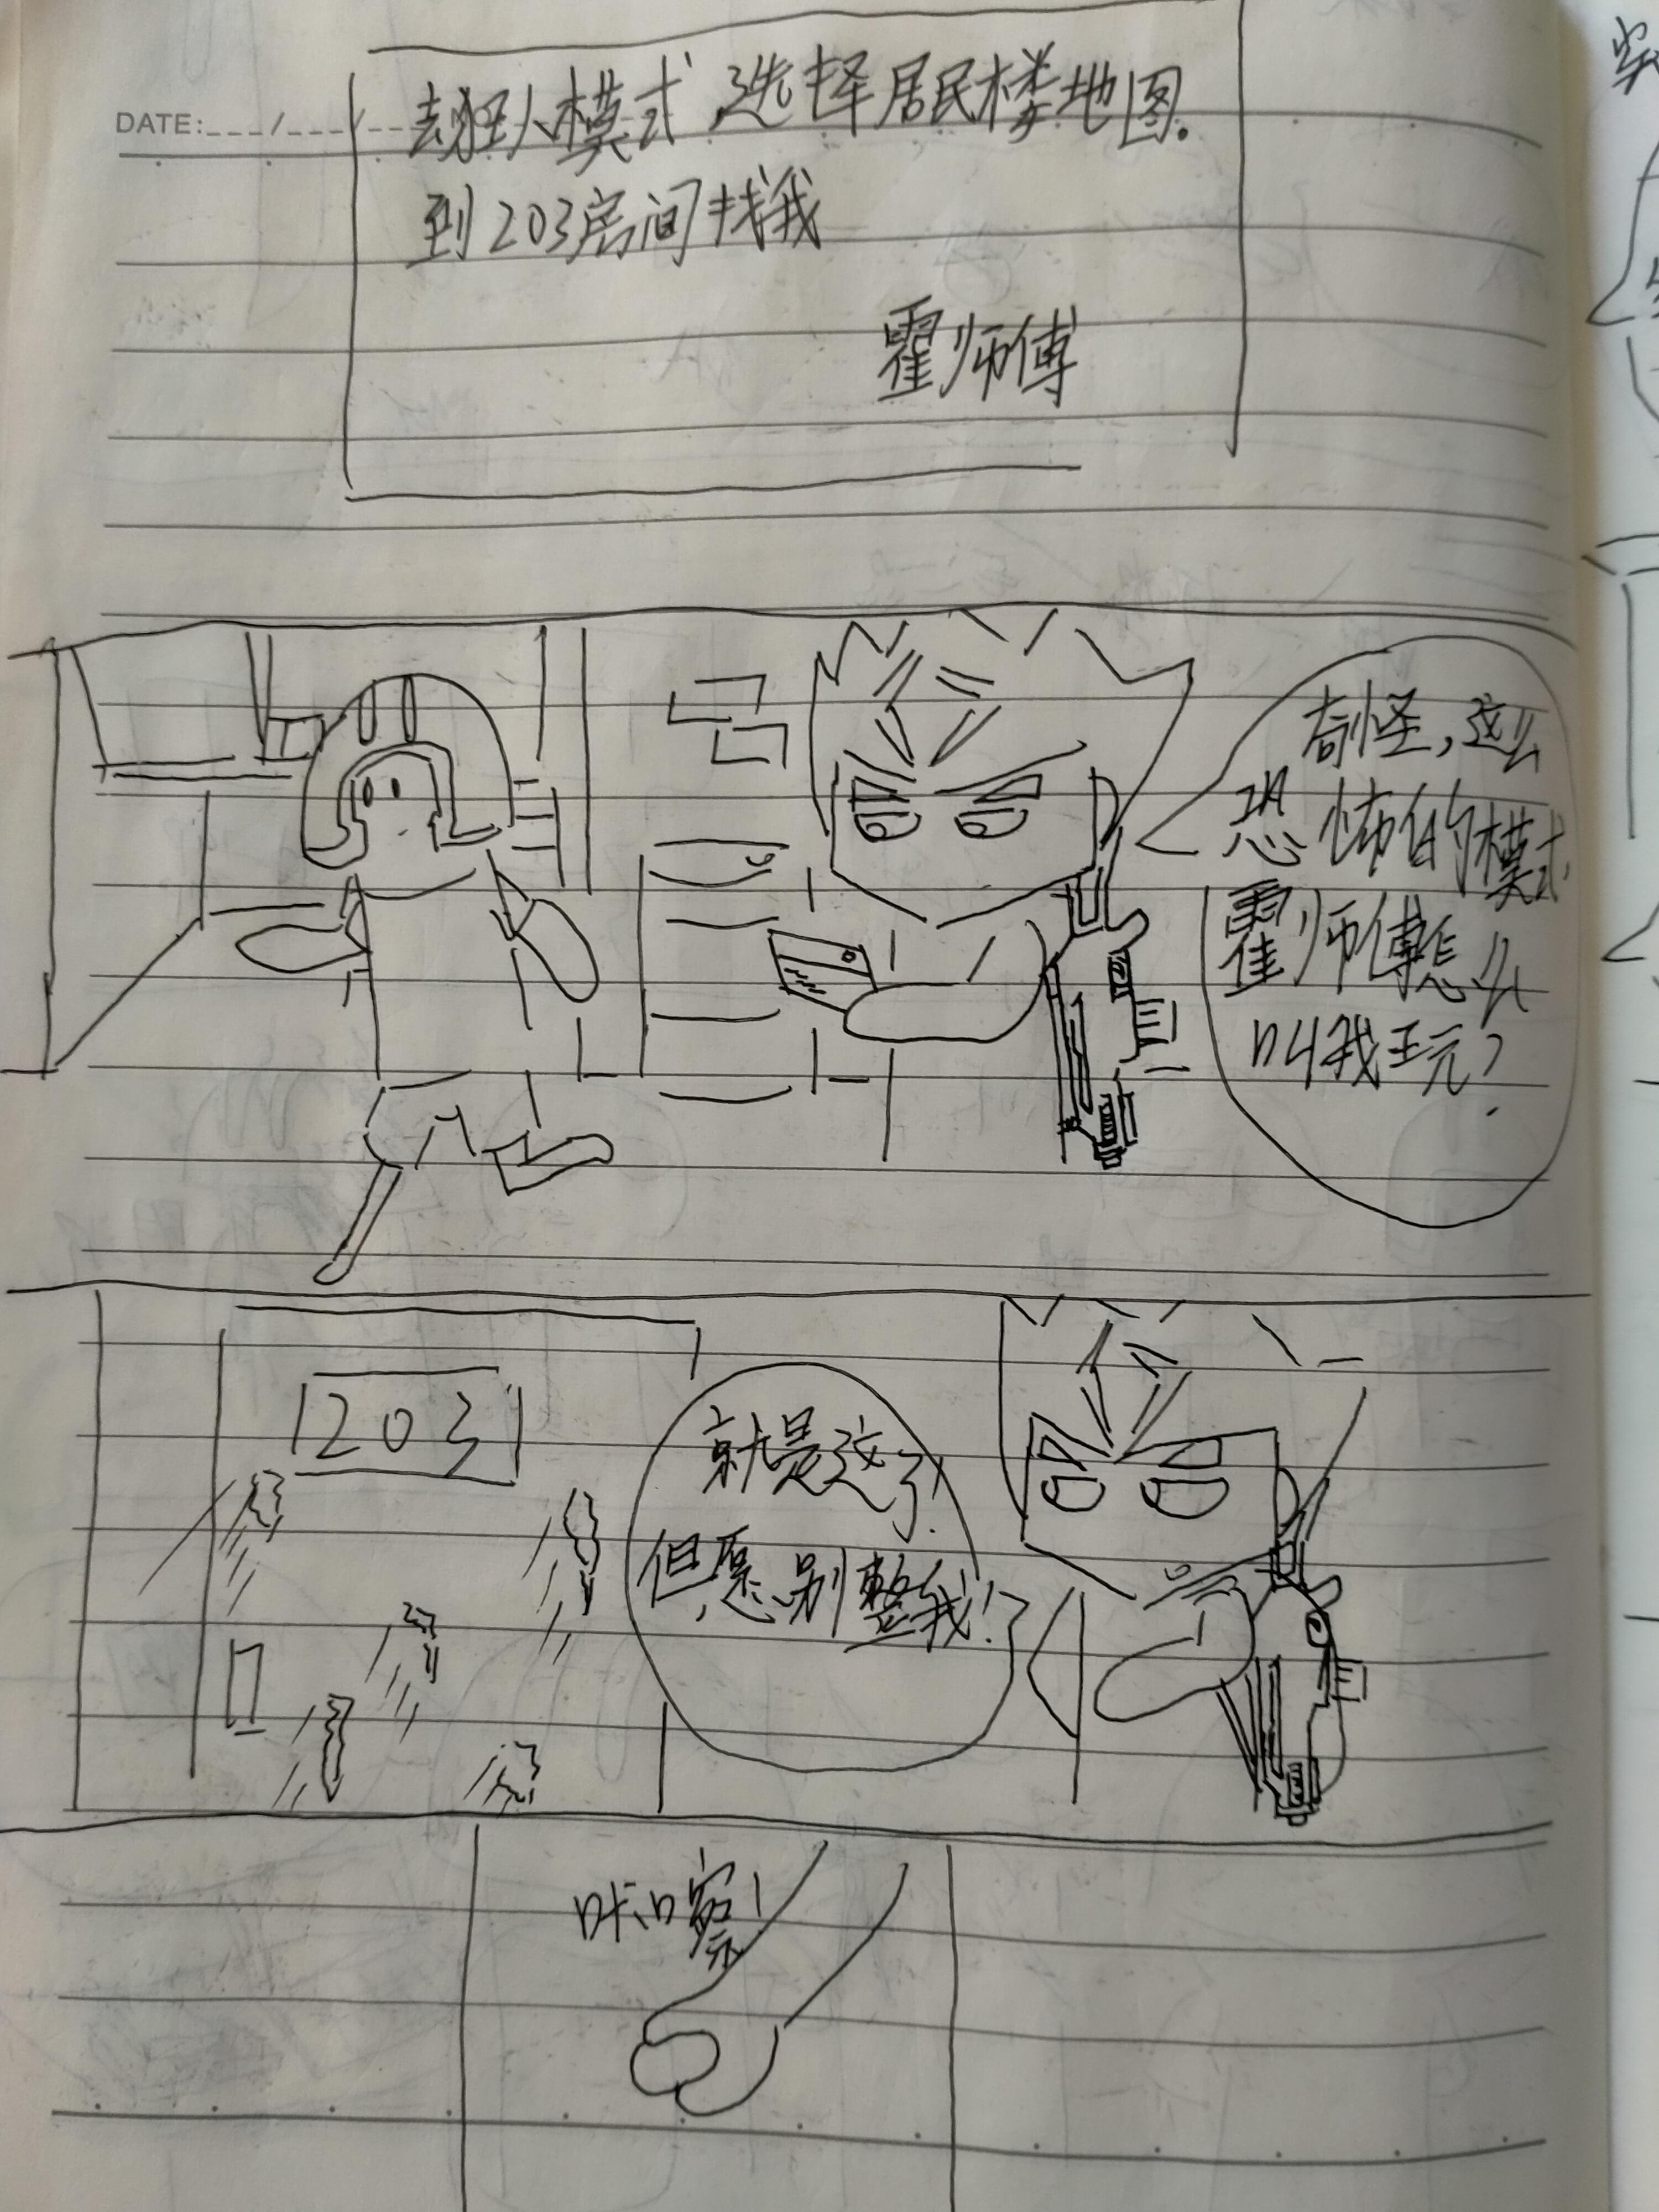 DATE:___/___/__
去狂人模式,选择居民楼地图.
到203房间找我
霍师傅
奇怪,这么
恐怖的模式
霍师傅怎么
叫我玩?
203
就是这了.
但愿别整我!
咔嚓!